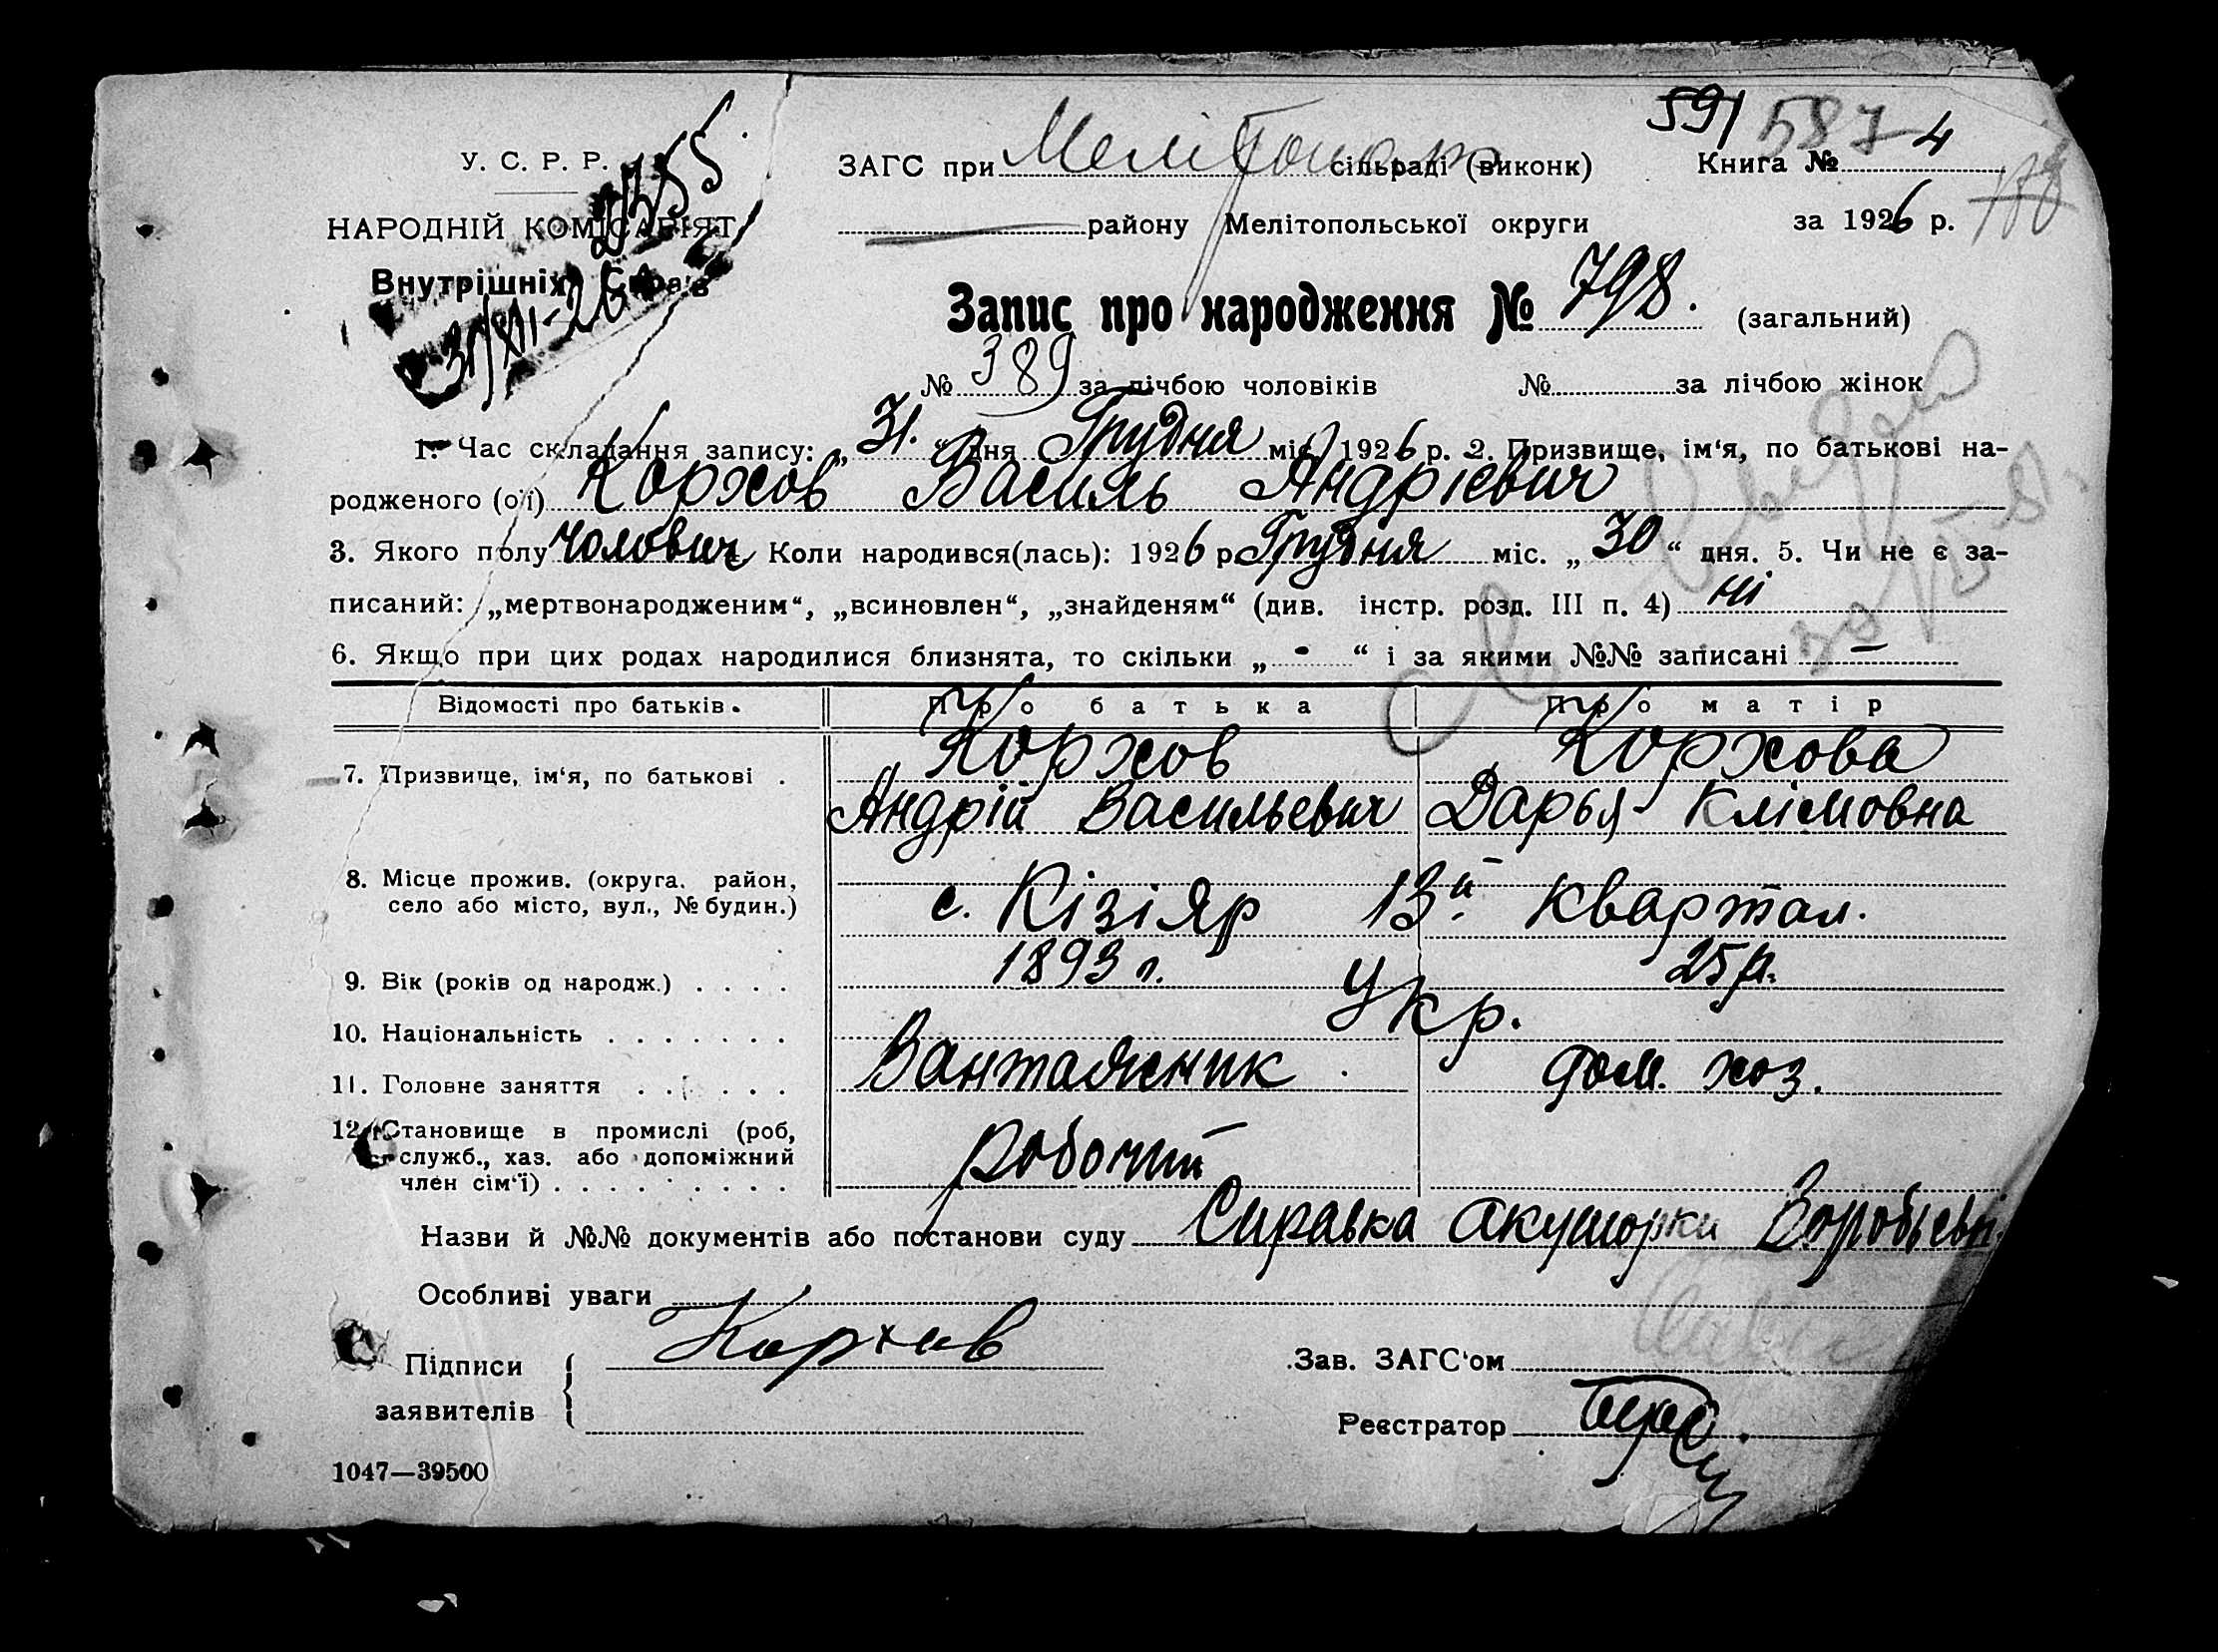 591 587 4
У. С. Р. Р.
ЗАГС при Меліто сільраді (виконк) Книга №
НАРОДНІЙ КОМІСАРІЯТ
району Мелітопольської округи за 1926 р.
Внутрішніх Справ
31/XII-26
Запис про народження № 798. (загальний)
№ 389 за лічбою чоловіків № за лічбою жінок
1. Час складання запису: „31.“ дня Грудня міс. 1926 р. 2. Призвище, ім‘я, по батькові на-
родженого (ої) Корхов Василь Андрієвич
3. Якого полу чолович Коли народився(лась): 1926 р. Грудня міс. „30“ дня. 5. Чи не є за-
писаний: „мертвонародженим“, „всиновлен“, „знайденям“ (див. інстр. розд. III п. 4) ні
6. Якщо при цих родах народилися близнята, то скільки „-“ і за якими №№ записані —
Відомості про батьків. Про батька Про матір
7. Призвище, ім‘я, по батькові . Корхов Корхова
Андрій Васильевич Дарья Клімовна
8. Місце прожив. (округа. район,
село або місто, вул., № будин.) с. Кізіяр 13й квартал.
9. Вік (років од народж.) . . . . 1893 р. 25 р.
10. Національність . . . . . . . Укр.
11. Головне заняття . . . . . Вантажник дом. хоз.
12. Становище в промислі (роб,
служб., хаз. або допоміжний
член сім‘ї) . . . . . . . . . робочий
Назви й №№ документів або постанови суду Справка акушорки Воробьевой
Особливі уваги
Підписи Корхов .Зав. ЗАГС‘ом
заявителів Реєстратор
1047—39500